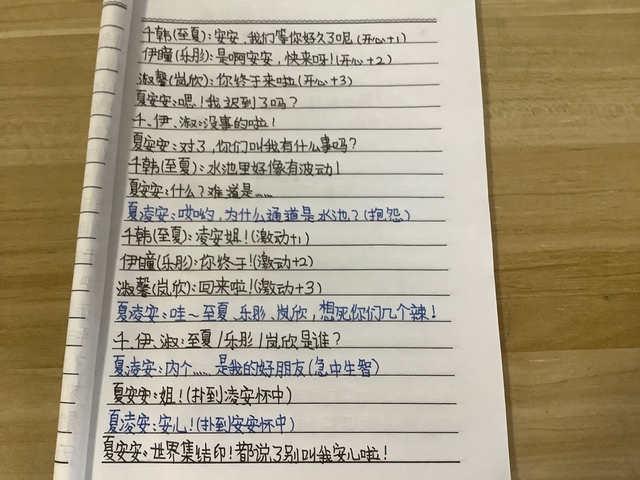 千韩(至夏):安安,我们等你好久了呢(开心+1)
伊瞳(乐彤):是啊安安,快来呀!(开心+2)
淑馨(岚欣):你终于来啦(开心+3)
夏安安:嗯!我迟到了吗?
千、伊、淑:没事的啦!
夏安安:对了,你们叫我有什么事吗?
千韩(至夏):水池里好像有波动!
夏安安:什么?难道是……
夏凌安:哎哟,为什么通道是水池?(抱怨)
千韩(至夏):凌安姐!(激动+1)
伊瞳(乐彤):你终于!(激动+2)
淑馨(岚欣):回来啦!(激动+3)
夏凌安:哇~至夏、乐彤、岚欣,想死你们几个辣!
千、伊、淑:至夏/乐彤/岚欣是谁?
夏凌安:内个……是我的好朋友(急中生智)
夏安安:姐!(扑到凌安怀中)
夏凌安:安儿!(扑到安安怀中)
夏安安:世界集结印!都说了别叫我安儿啦!